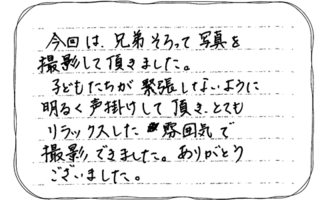 今回は、兄弟そろって写真を
撮影して頂きました。
子どもたちが緊張しないように
明るく声掛けして頂き、とても
リラックスした雰囲気で
撮影できました。ありがとう
ございました。